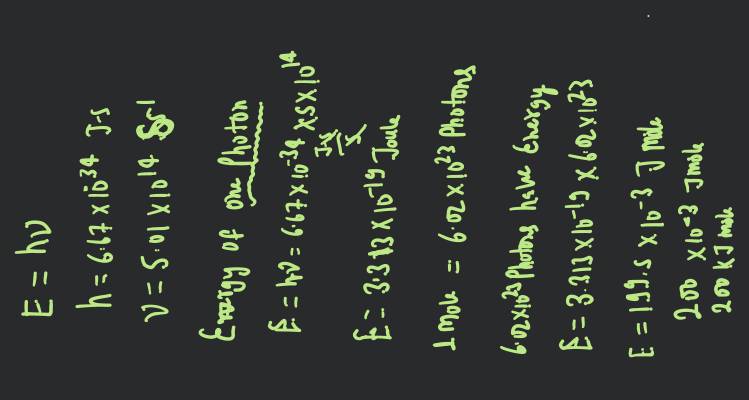 E = hν
h = 6.67 × 10^-34 J-s
ν = 5.01 × 10^14 s^-1
Energy of one Photon
E = hν = 6.67 × 10^-34 × 5 × 10^14
J-s
E = 3.313 × 10^-19 Joule
1 Mole = 6.02 × 10^23 Photons
6.02×10^23 Photons have Energy
E = 3.313×10^-19 × 6.02×10^23
E = 199.5 × 10^-3 J mole
200 × 10^-3 J mole
200 KJ mole